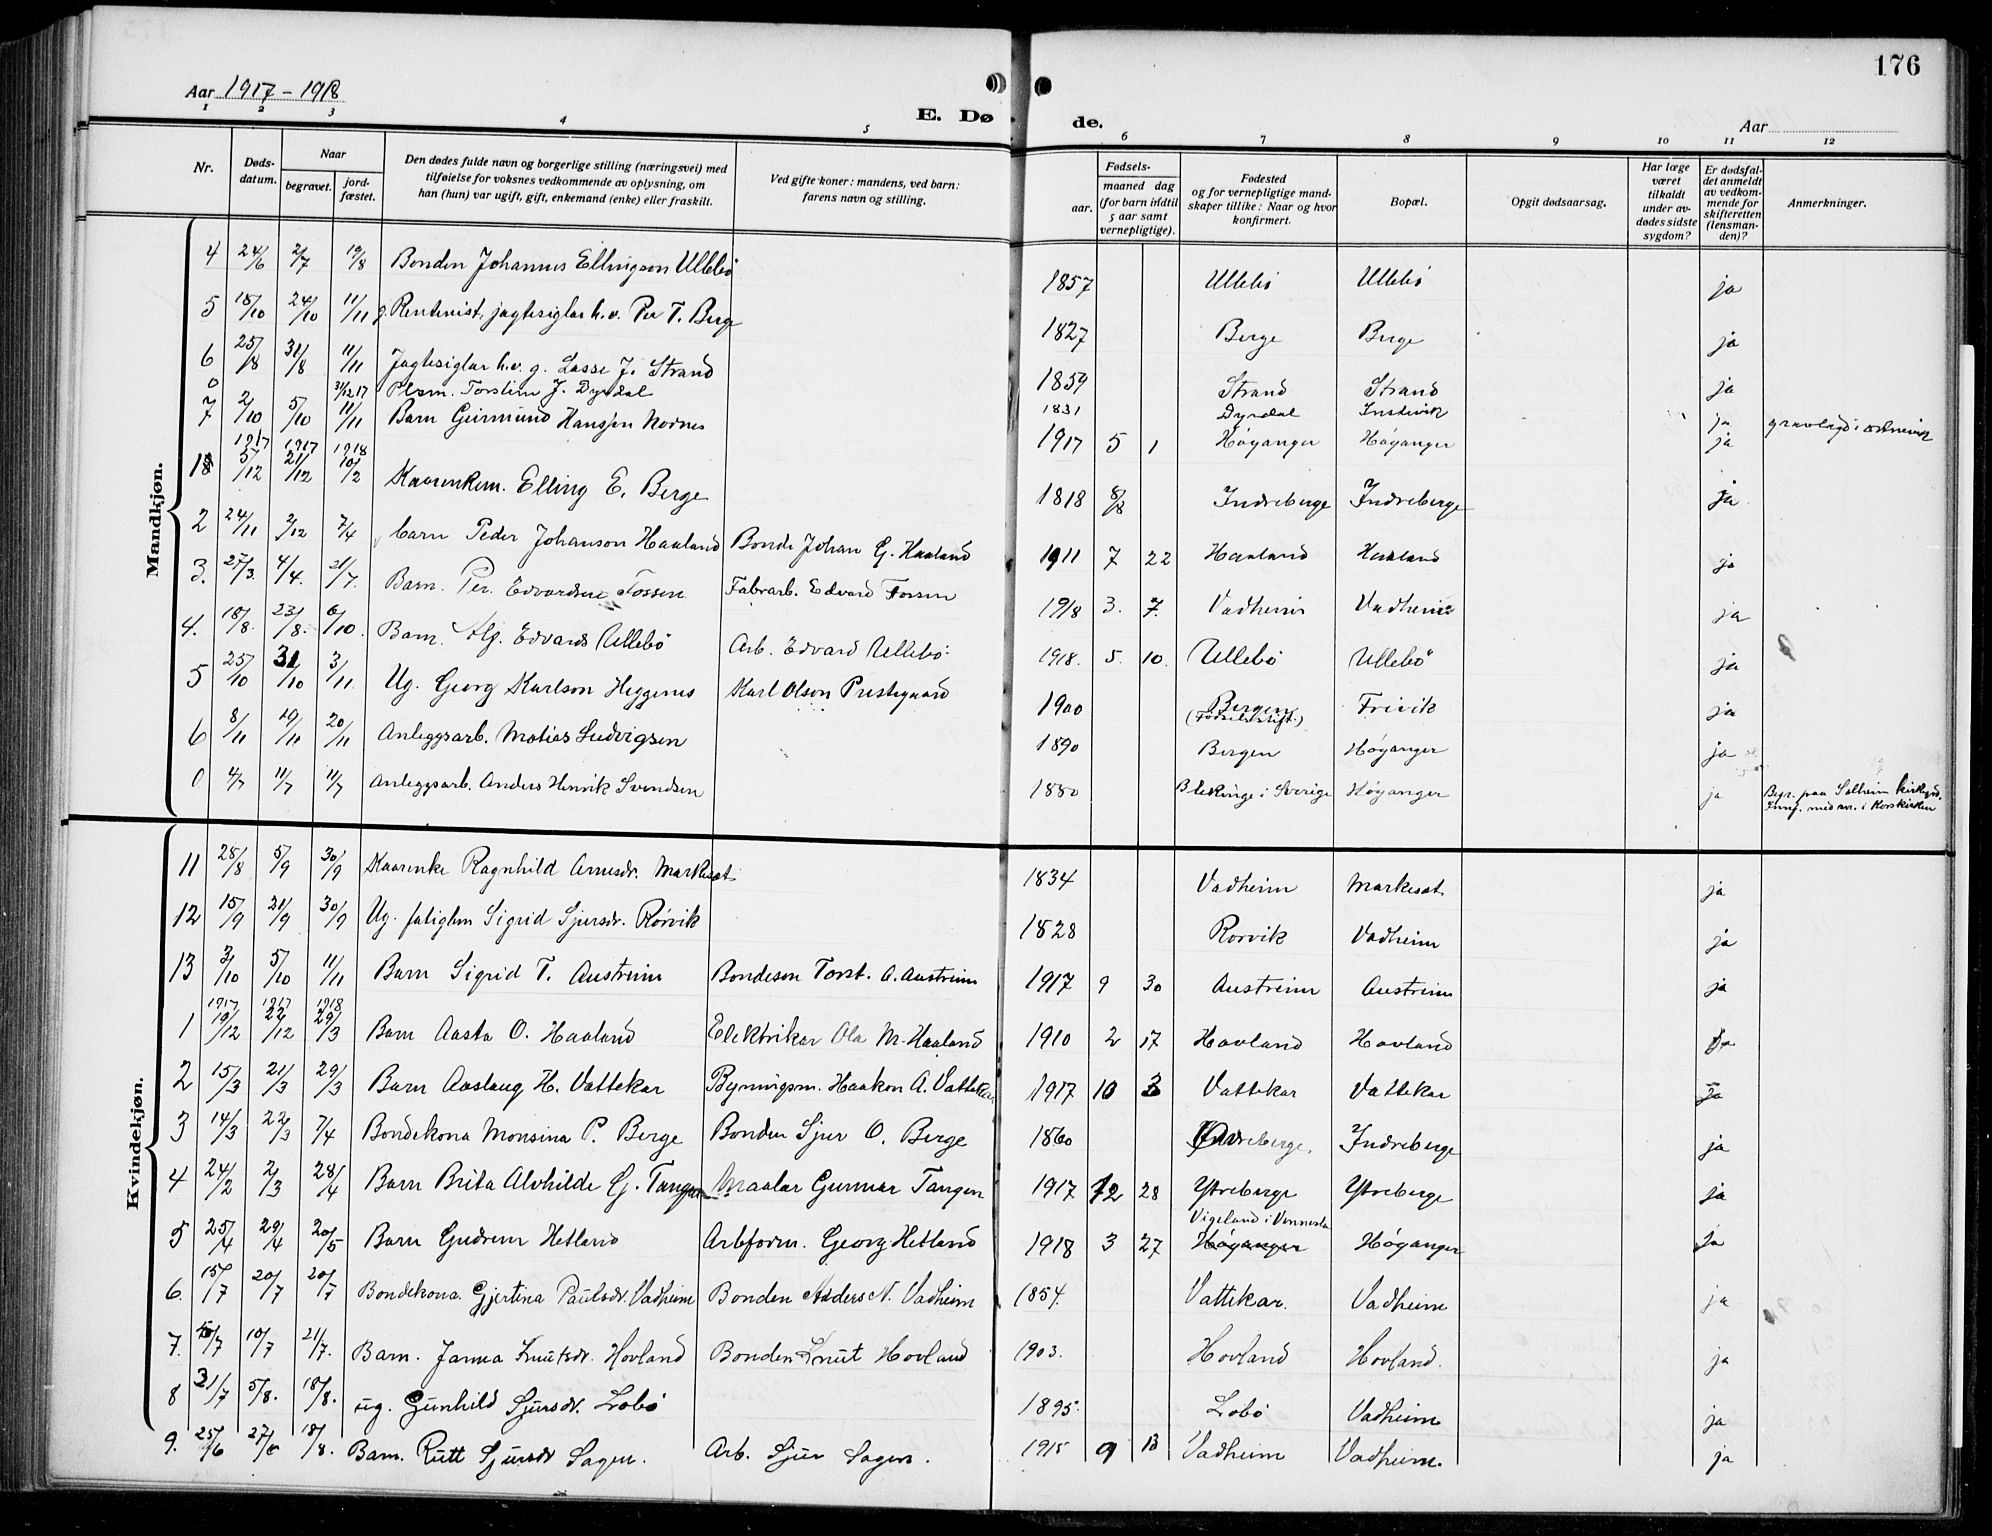 176
Aar 1917 - 1918
E. Døde.
Aar
1 2 3 4 5 6 7 8 9 10 11 12
Nr.
Døds-datum.
Naar
begravet.
jord-fæstet.
Den dødes fulde navn og borgerlige stilling (næringsvei) med
tilføielse for voksnes vedkommende av oplysning, om
han (hun) var ugift, gift, enkemand (enke) eller fraskilt.
Ved gifte koner: mandens, ved barn:
farens navn og stilling.
Fødsels-
aar.
maaned dag
(for barn indtil
5 aar samt
vernepligtige).
Fødested
og for vernepligtige mand-
skaper tillike: Naar og hvor
konfirmert.
Bopæl.
Opgit dødsaarsag.
Har læge
været
tilkaldt
under av-
dødes sidste
sygdom?
Er dødsfal-
det anmeldt
av vedkom-
mende for
skifteretten
(lensman-
den)?
Anmerkninger.
Mandkjøn.
4 24/6 2/7 19/8 Bonden Johannes Ellingson Ullebö 1857 Ullebö Ullebö ja
5 18/10 24/10 11/11 g. Rentenist, jagtesiglar h.v. Per T. Berge 1827 Berge Berge ja
6 25/8 31/8 11/11 Jagtesiglar h.v. g. Lasse J. Strand 1859 Strand Strand ja
0 31/12 17 Plsm. Torstein J. Dyrdal 1831 Dyrdal Instevik ja gravlagd i
7 2/10 5/10 11/11 Barn Geirmund Hansen Nornes 1917 5 1 Høyanger Høyanger ja
1917 1917 1918
1 5/12 21/12 10/2 Kaarenkem. Elling E. Berge 1818 8/8 Indreberge Indreberge ja
2 24/11 2/12 7/4 barn Peder Johanson Haaland Bonde Johan G. Haaland 1911 7 22 Haaland Haaland ja
3. 25/3. 4/4. 21/7. Barn. Per. Edvardsen Fossen Fabrarb. Edvard Fossen 1918 3. 7. Vadheim Vadheim ja
4. 18/8. 23/8. 6/10. Barn. Alg. Edvards Ullebö Arb. Edvard Ullebö 1918. 5. 10. Ullebö Ullebö ja
5 25/10 31/10 3/11. Ug. Georg Karlson Heggenes Karl Olson Prestegaard 1900 Bergen (Fødselsstift.) Frivik ja
6 8/11 19/11 20/11 Anleggsarb. Matias Ludvigsen 1890 Bergen Høyanger ja
0 4/7 11/7 11/7 Anleggsarb. Anders Henrik Svendsen 1880 Blekinge i Sverige Høyanger ja Begr. paa Solheim kirkegd.
Innf. med nr. i Korskirken
Kvindekjøn.
11 28/8 5/9 30/9 Kaarenke Ragnhild Arnesdr. Markeset 1834 Vadheim Markeset ja
12 15/9 21/9 30/9 Ug. fatiglem Sigrid Sjursdr. Rörvik 1828 Rorvik Vadheim ja
13 3/10 5/10 11/11 Barn Sigrid T. Austreim Bondeson Torst. A. Austreim 1917 9 30 Austreim Austreim ja
1917 1917 1918
1 19/12 22/12 29/3 Barn Aasta O. Haaland Elektrikar Ola M. Haaland 1910 2 17 Hovland Hovland ja
2 15/3 21/3 29/3 Barn Aaslaug H. Vattekar Bygningsm. Haakon A. Vattekar 1917 10 3 Vattekar Vattekar ja
3 14/3 22/3 7/4 Bondekona Monsina P. Berge Bonden Sjur O. Berge 1860 Indreberge. Indreberge ja
4 24/2 2/3 28/4 Barn Brita Alvhilde G. Tangen Maalar Gunnar Tangen 1917 12 28 Ytreberge Ytreberge ja
5 25/4 29/4 20/5 Barn Gudrun Hetland Arbform. Georg Hetland 1918 3 27 Vigeland i Vennesla Høyanger Høyanger ja
6. 15/7 20/7 20/7 Bondekona. Gjertina Paulsdr. Vadheim Bonden Anders N. Vadheim 1854. Vattekar. Vadheim ja
7. 10/7 21/7. Barn. Janna Knutsdr. Hovland Bonden Knut Hovland 1903. Hovland Hovland. ja
8 31/7 5/8. 18/8. ug. Gunhild Sjursdr. Lobö 1895. Lobö Vadheim ja
9. 25/6 27/6 18/8. Barn. Rutt Sjursdr Sagen. Arb. Sjur Sagen. 1915 9 13 Vadheim Vadheim. ja